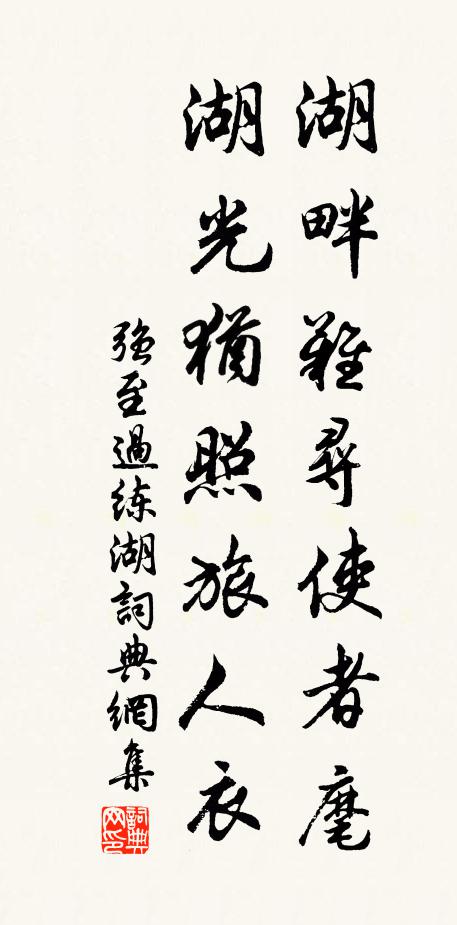 湖畔難尋使者麾
湖光猶照旅人衣
強至過练湖詞典網集
詞典网印